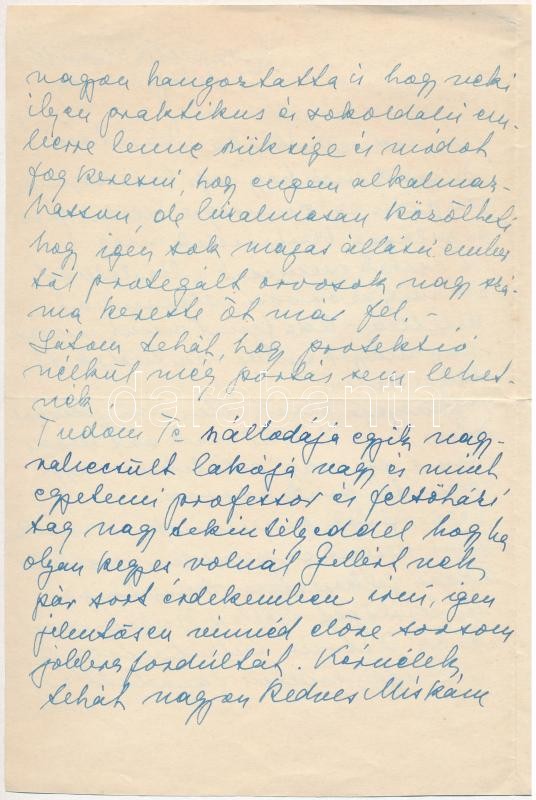 nagyon hangoztatta is hogy neki
ilyen praktikus és sokoldalú em-
berre lenne szüksége és módot
fog keresni, hogy engem alkalmaz-
hasson, de bizalmasan közölheti
hogy igen sok magas állású ember
től protegált orvosok nagy szá-
ma kereste őt más fel. –
Látom tehát, hogy protektió
nélkül még portás sem lehet-
nék!
Tudom Te szállodája egyik nagy-
rabecsült lakója vagy és mint
egyetemi professor és felsőházi
tag nagy tekintélyeddel hogyha
olyan kegyes volnál Gellértnek
pár sort érdekemben irni, igen
jelentősen vinnéd előre sorsom
jobbra fordúltát. Kérnélek
tehát nagyon kedves Miskám
darabanth